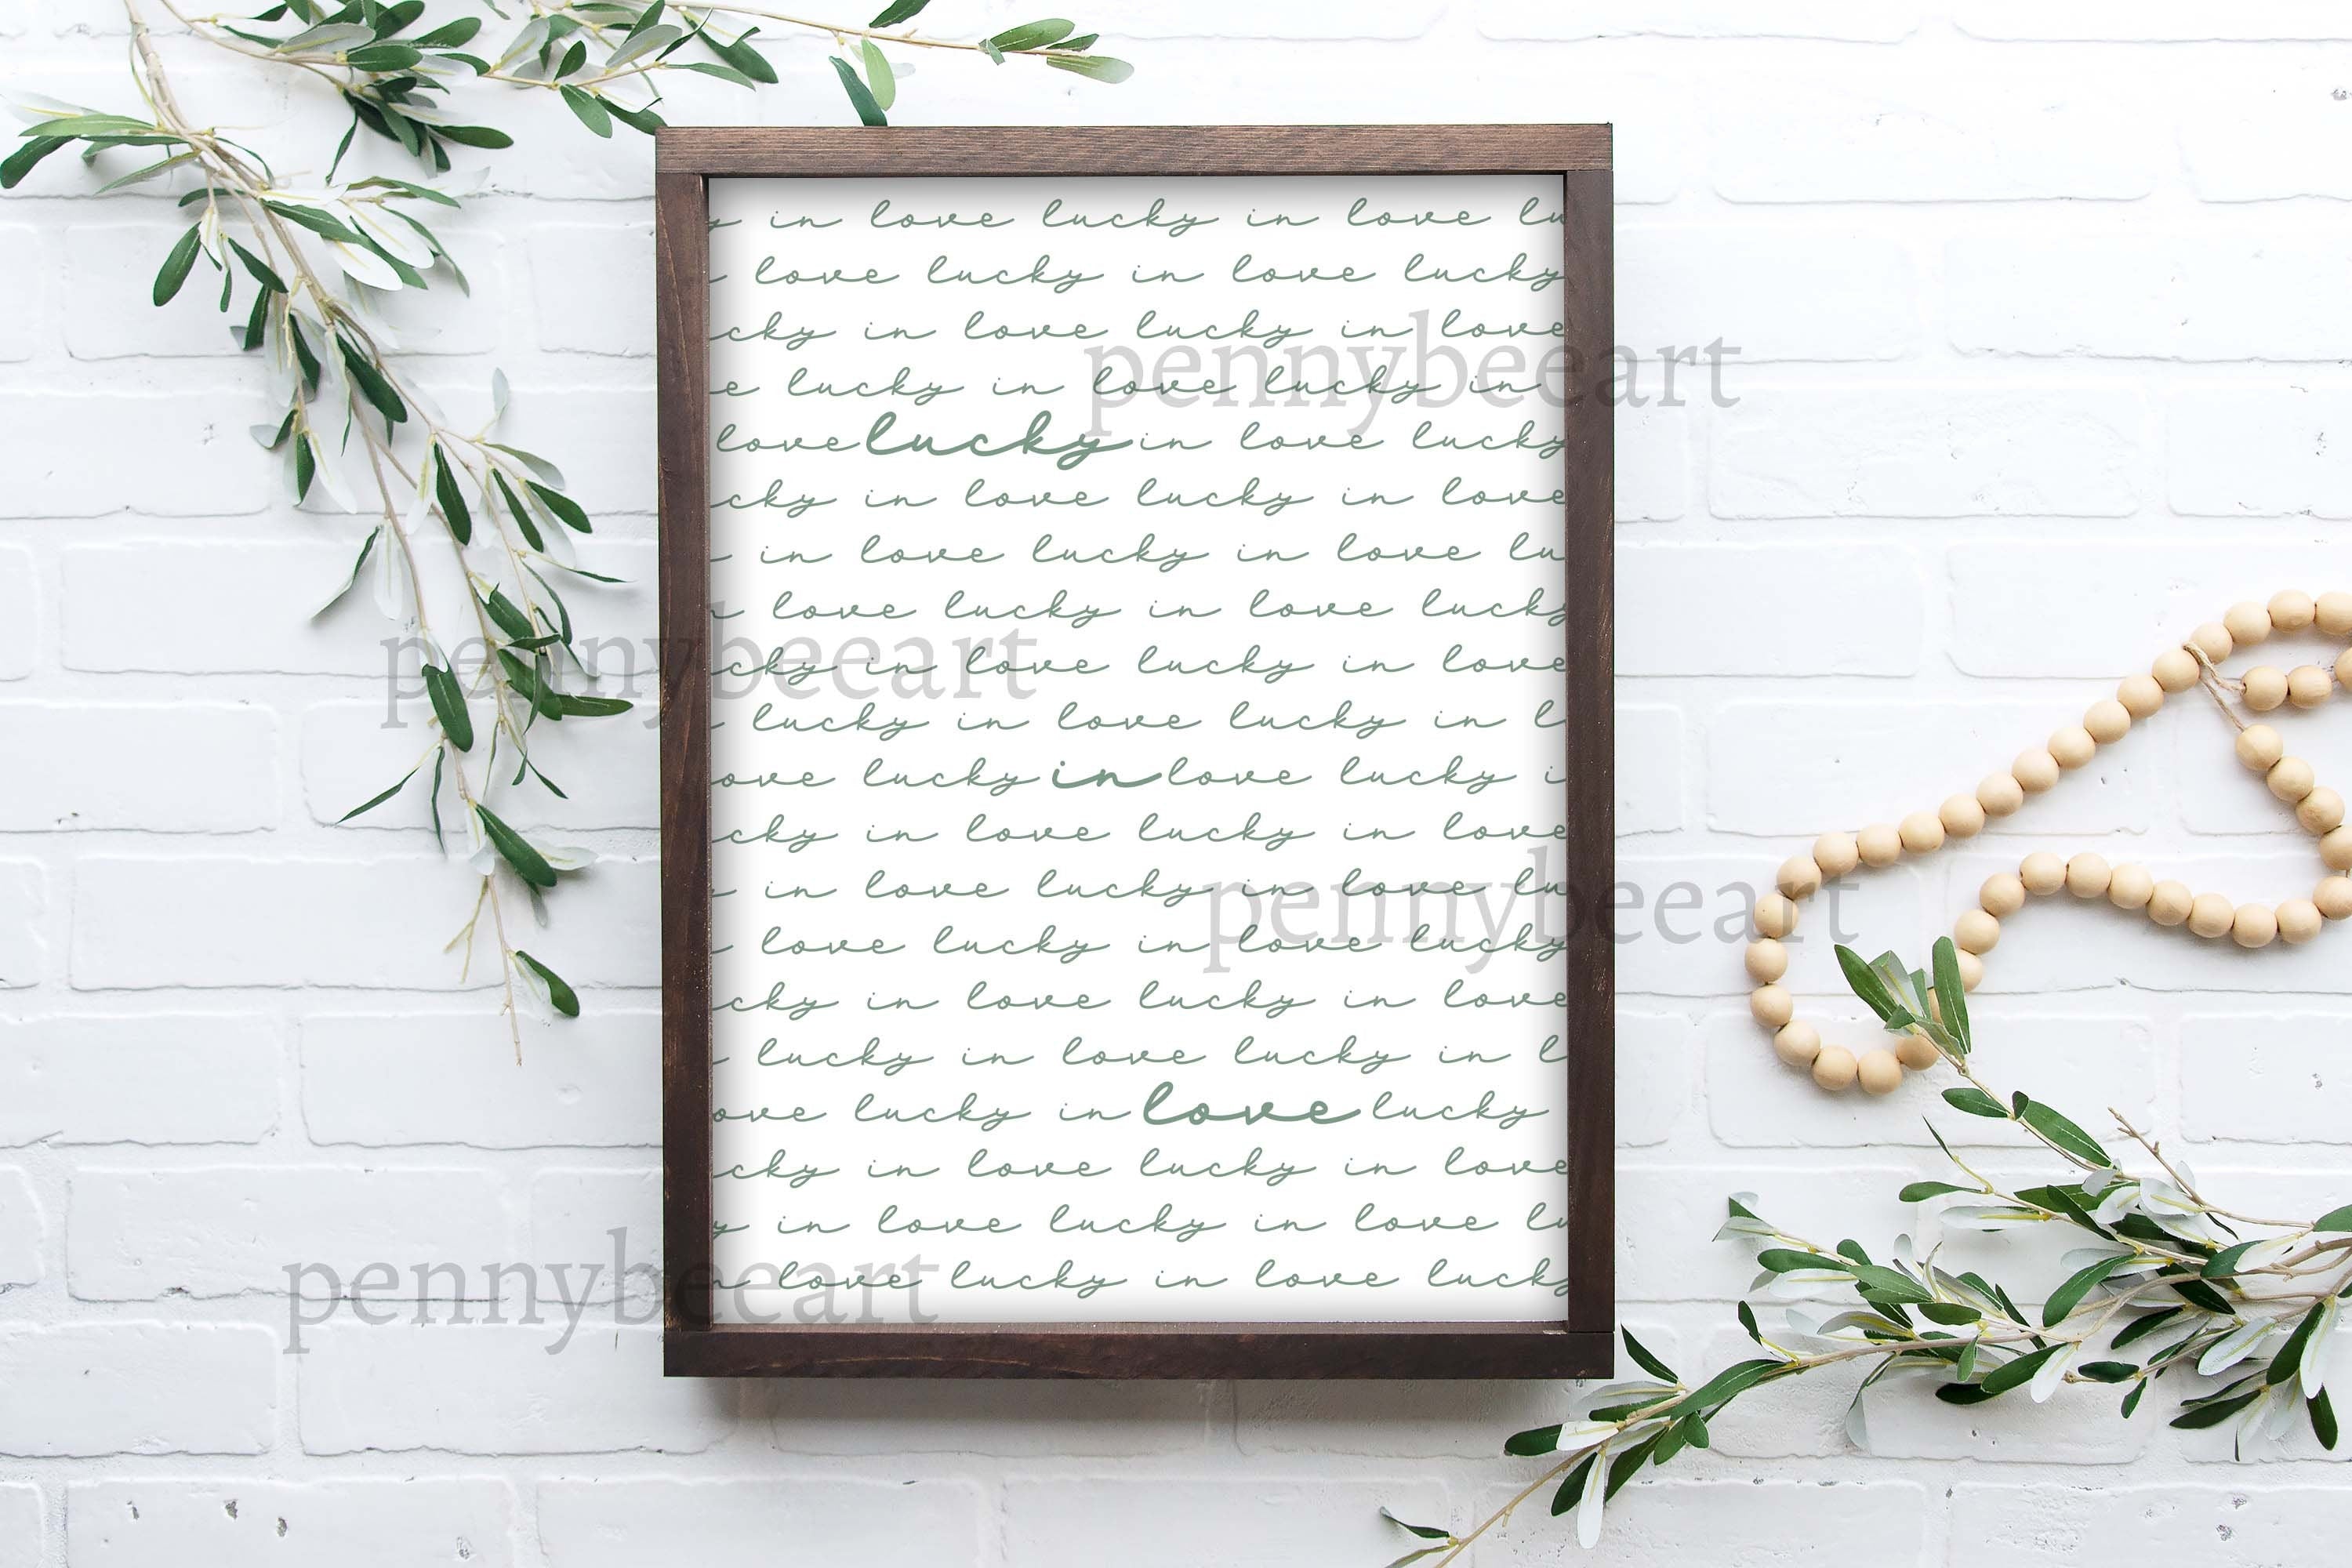 y in love lucky in love lu
love lucky in love lucky
cky in love lucky in love
pennybeeart
e lucky in love lucky in
love lucky in love lucky
cky in love lucky in love
in love lucky in love lu
love lucky in love lucky
pennybeeart
cky in love lucky in love
lucky in love lucky in l
ove lucky in love lucky i
cky in love lucky in love
in love lucky in love lu
pennybeeart
love lucky in love lucky
cky in love lucky in love
lucky in love lucky in l
ove lucky in love lucky
cky in love lucky in love
y in love lucky in love lu
pennybeeart
n love lucky in love lucky